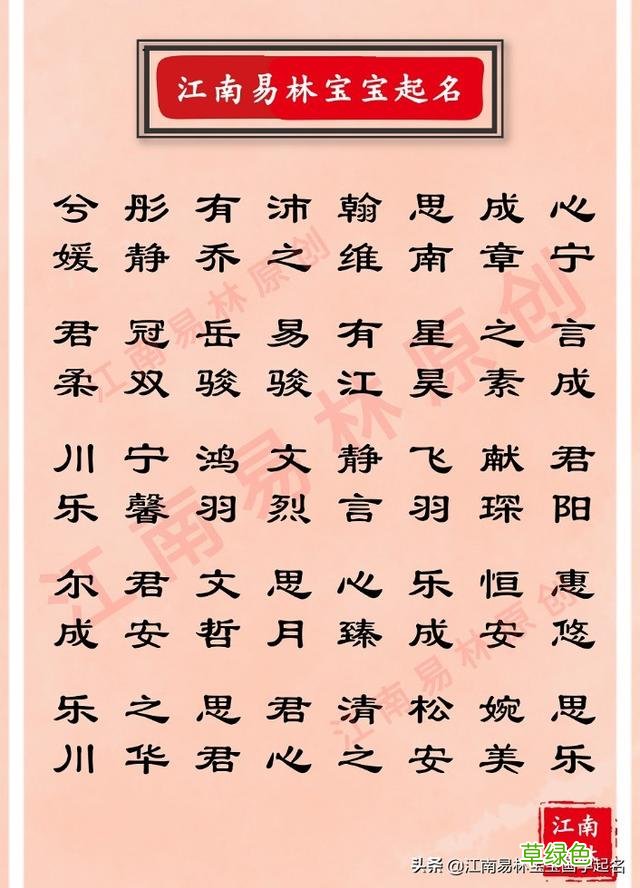 江南易林宝宝起名
兮彤有沛翰思成心
媛静乔之维南章宁
君冠岳易有星之言
柔双骏骏江昊素成
川宁鸿文静飞献君
乐馨羽烈言羽琛阳
尔君文思心乐恒惠
成安哲月臻成安悠
乐之思君清松婉思
川华君心之安美乐
江南易林原创
江南易林原创
江南易林原创
江南
草绿色
头条 @江南易林宝宝国学起名